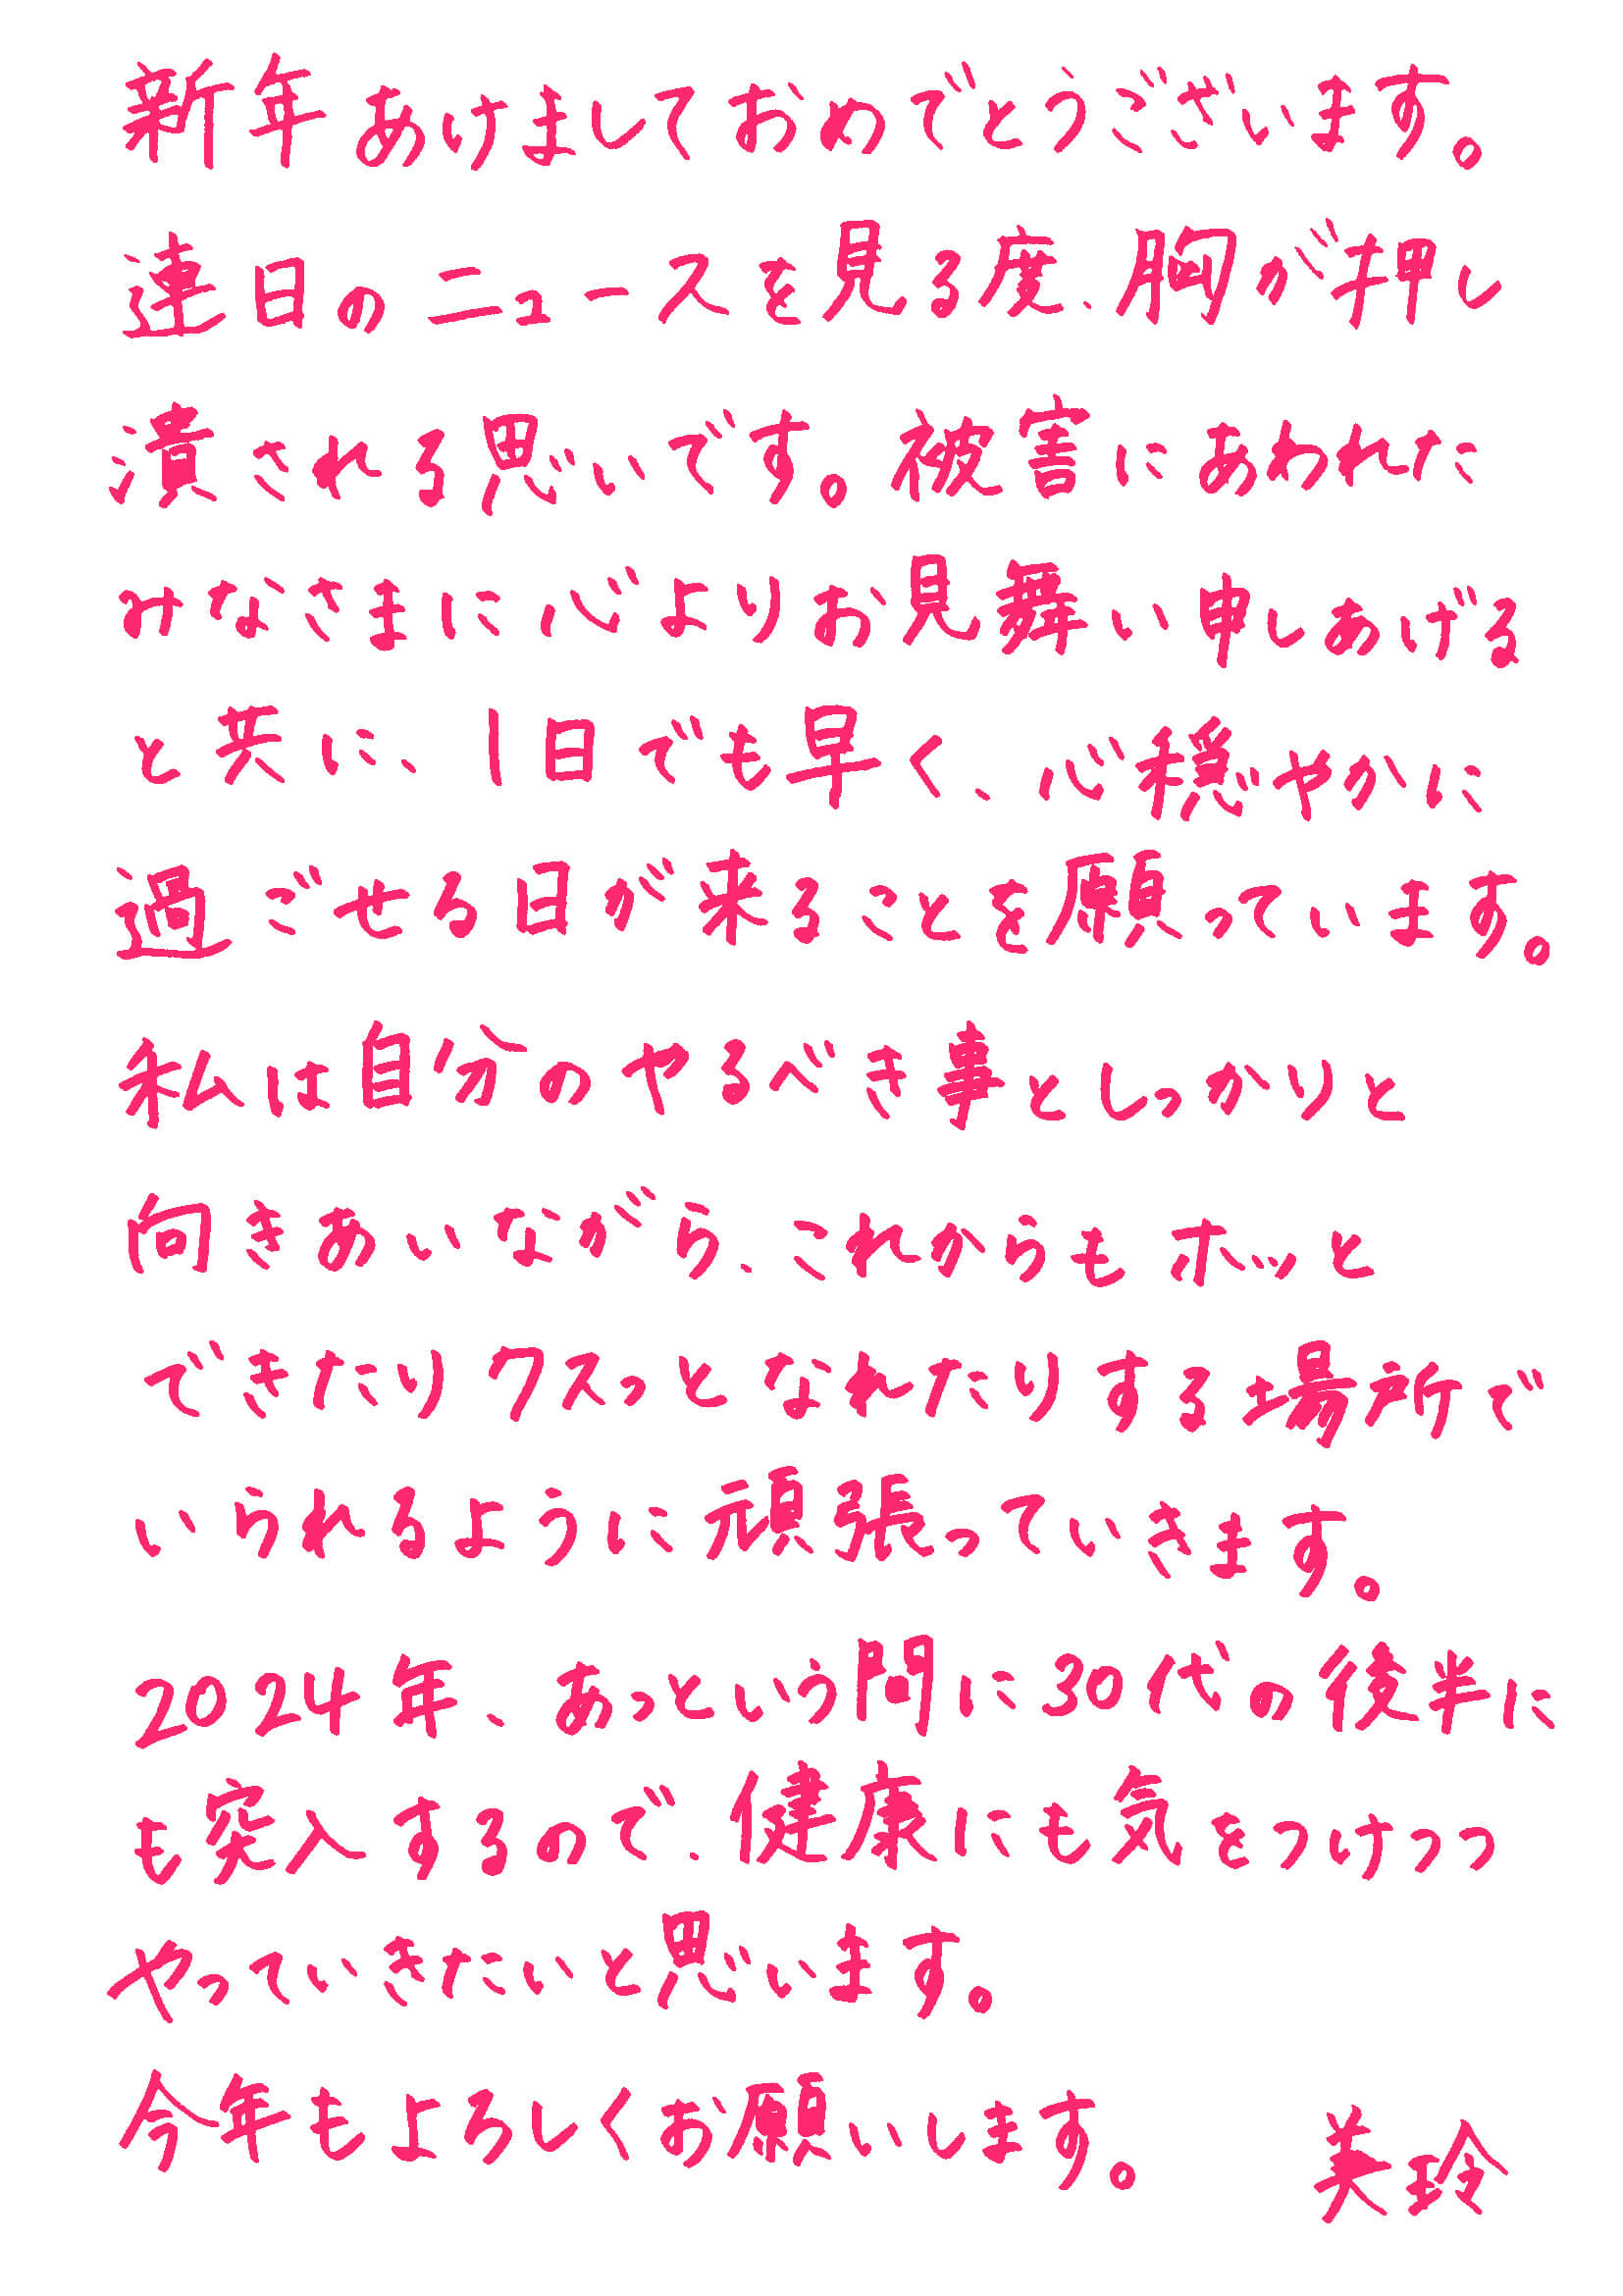 新年あけましておめでとうございます。
連日のニュースを見る度、胸が押し
潰される思いです。被害にあわれた
みなさまに心よりお見舞い申しあげる
と共に、1日でも早く、心穏やかに
過ごせる日が来ることを願っています。
私は自分のやるべき事としっかりと
向きあいながら、これからもホッと
できたりクスっとなれたりする場所で
いられるように頑張っていきます。
2024年、あっという間に30代の後半に
も突入するので、健康にも気をつけつつ
やっていきたいと思います。
今年もよろしくお願いします。 美玲